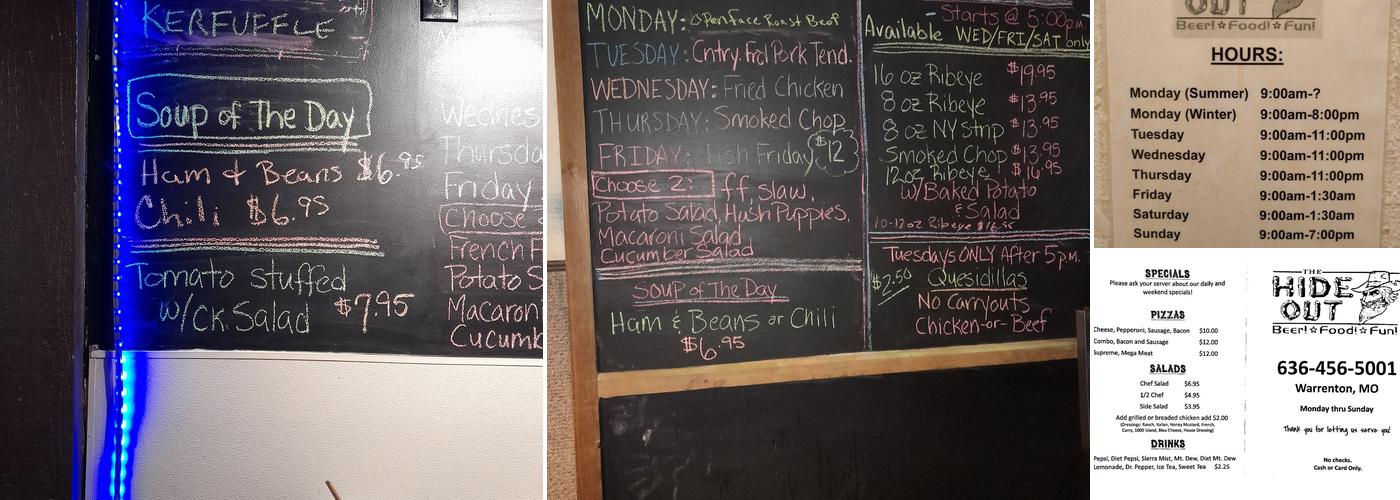 KERFUFFLE
Soup of The Day
Ham & Beans $6.95
Chili $6.95
Tomato stuffed
w/Ck. Salad $7.95
Wednes
Thursda
Friday
Choose
French F
Potato S
Macaron
Cucumb
MONDAY: Openface Roast Beef
TUESDAY: Cntry. Frd Pork Tend.
WEDNESDAY: Fried Chicken
THURSDAY: Smoked Chop
FRIDAY: Fish Friday $12
Choose 2: ff, slaw,
Potato Salad, Hush Puppies,
Macaroni Salad
Cucumber Salad
Soup of The Day
Ham & Beans or Chili
$6.95
Starts @ 5:00pm.
Available WED/FRI/SAT only
16 oz Ribeye $19.95
8 oz Ribeye $13.95
8 oz NY Strip $13.95
Smoked Chop $13.95
12oz Ribeye $16.95
w/Baked Potato
& Salad
10-12oz Ribeye
Tuesdays ONLY After 5p.m.
$2.50 Quesidillas
No Carryouts
Chicken-or-Beef
OUT
Beer!☆Food!☆Fun!
HOURS:
Monday (Summer) 9:00am-?
Monday (Winter) 9:00am-8:00pm
Tuesday 9:00am-11:00pm
Wednesday 9:00am-11:00pm
Thursday 9:00am-11:00pm
Friday 9:00am-1:30am
Saturday 9:00am-1:30am
Sunday 9:00am-7:00pm
SPECIALS
Please ask your server about our daily and
weekend specials!
PIZZAS
Cheese, Pepperoni, Sausage, Bacon $10.00
Combo, Bacon and Sausage $12.00
Supreme, Mega Meat $12.00
SALADS
Chef Salad $6.95
1/2 Chef $4.95
Side Salad $3.95
Add grilled or breaded chicken add $2.00
(Dressings: Ranch, Italian, Honey Mustard, French,
Curry, 1000 Island, Bleu Cheese, House Dressing)
DRINKS
Pepsi, Diet Pepsi, Sierra Mist, Mt. Dew, Diet Mt. Dew
Lemonade, Dr. Pepper, Ice Tea, Sweet Tea $2.25
THE
HIDE
OUT
Beer!☆Food!☆Fun!
636-456-5001
Warrenton, MO
Monday thru Sunday
Thank you for letting us serve you!
No checks.
Cash or Card Only.